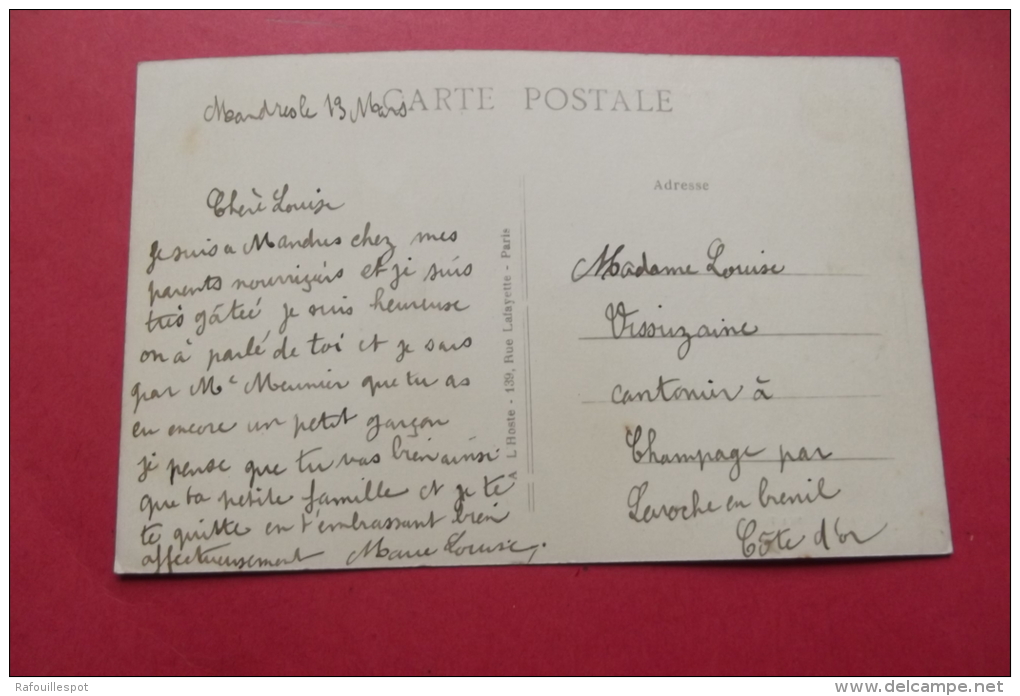 CARTE POSTALE
Mandres le 13 Mars
Chère Louise
Je suis a Mandres chez mes
parents nourriçiers et je suis
très gâtée je suis heureuse
on à parlé de toi et je sais
par Me Meunier que tu as
eu encore un petit garçon
je pense que tu vas bien ainsi
que ta petite famille et je te
te quitte en t'embrassant bien
affectueusement Marie Louise
A L'Hoste - 139, Rue Lafayette - Paris
Adresse
Madame Louise
cantonier à
Champage par
Laroche en brenil
Côte d'or
Rafouillespot
www.delcampe.net